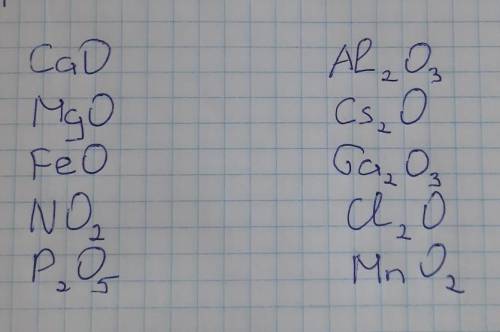 CaO
MgO
FeO
NO₂
P₂O₅
Al₂O₃
Cs₂O
Ga₂O₃
Cl₂O
MnO₂